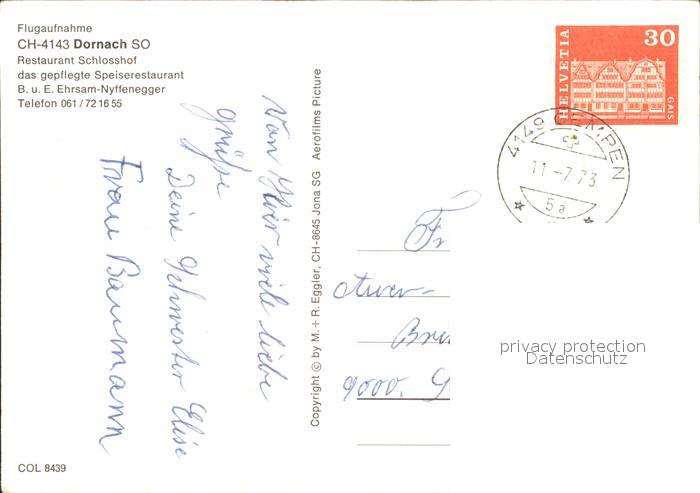 Flugaufnahme
CH-4143 Dornach SO
Restaurant Schlosshof
das gepflegte Speiserestaurant
B. u. E. Ehrsam-Nyffenegger
Telefon 061/72 16 55
Von Hier viele liebe
grüsse
Deine Schwester Elise
Frau Baumann
Copyright © by M. + R. Eggler, CH-8645 Jona SG Aerofilms Picture
HELVETIA
30
GAIS
4149 GEMPEN
11-7.73
5a
Fr
Auer-
Bre
9000. G
privacy protection
Datenschutz
COL 8439